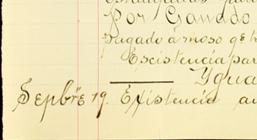 Por Ganado
Pagado á moso qe
Escistencia par
Ygua
Sepbre 19. Existencia au